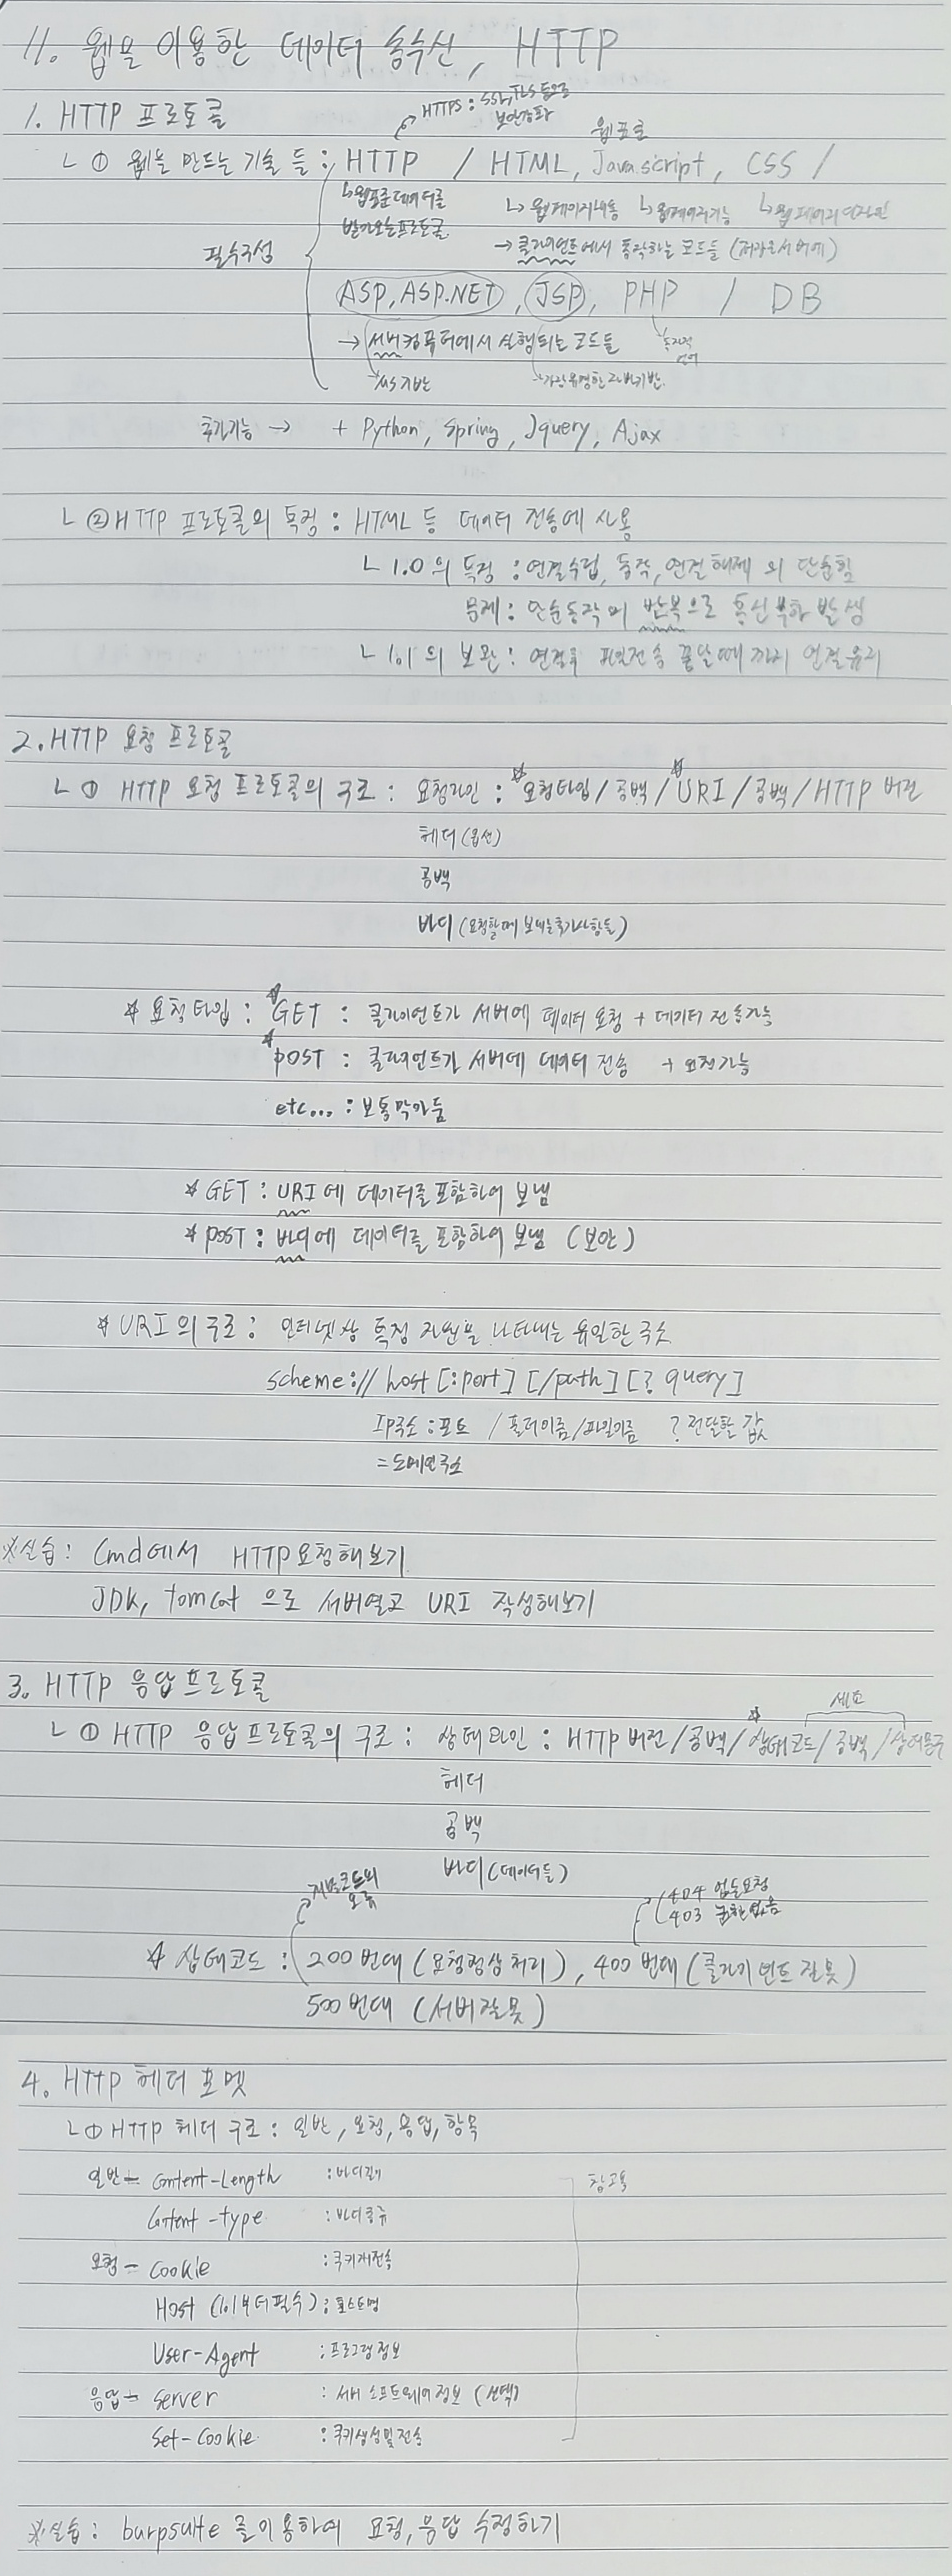 11. 웹을 이용한 데이터 송수신, HTTP
HTTPS : SSL, TLS 등으로
보안강화
1. HTTP 프로토콜
웹표준
ㄴ ① 웹을 만드는 기술 들 : HTTP / HTML, Javascript, CSS /
ㄴ웹표준데이터를 ㄴ웹페이지내용 ㄴ웹페이지기능 ㄴ웹페이지디자인
받아오는프로토콜
필수구성
→ 클라이언트에서 동작하는 코드들 (저장은서버에)
ASP, ASP.NET, JSP, PHP / DB
→ 서버컴퓨터에서 실행되는 코드들
독자적
언어
MS기반 가장유명한 자바기반
추가기능 → + Python, Spring, Jquery, Ajax
ㄴ ② HTTP 프로토콜의 특징 : HTML 등 데이터 전송에 사용
ㄴ 1.0의 특징 : 연결수립, 동작, 연결해제 의 단순함
문제 : 단순동작의 반복으로 통신부하 발생
ㄴ 1.1의 보완 : 연결후 파일전송 끝날때 까지 연결유지
2. HTTP 요청 프로토콜
ㄴ ① HTTP 요청 프로토콜의 구조 : 요청라인 : 요청타입/공백/URI/공백/HTTP 버전
헤더(옵션)
공백
바디 (요청할때 보내는추가사항들)
☆ 요청타입 : ☆GET : 클라이언트가 서버에 데이터 요청 + 데이터 전송가능
☆POST : 클라이언트가 서버에 데이터 전송 + 요청가능
etc... : 보통막아둠
☆ GET : URI에 데이터를 포함하여 보냄
☆ POST : 바디에 데이터를 포함하여 보냄 (보안)
☆ URI의 구조 : 인터넷상 특정 자원을 나타내는 유일한 주소
scheme:// host [:port] [/path] [? query]
IP주소 : 포트 / 폴더이름/파일이름 ? 전달할 값
= 도메인주소
※실습 : Cmd에서 HTTP요청해보기
JDK, tomcat 으로 서버열고 URI 작성해보기
3. HTTP 응답프로토콜
세트
ㄴ ① HTTP 응답프로토콜의 구조 : 상태라인 : HTTP버전/공백/☆상태코드/공백/상태문구
헤더
공백
바디(데이터들)
서버코드의
오류
404 없는요청
403 권한없음
☆ 상태코드 : 200번대 (요청정상처리), 400번대 (클라이언트 잘못)
500번대 (서버잘못)
4. HTTP 헤더 포맷
ㄴ ① HTTP 헤더 구조 : 일반, 요청, 응답, 항목
일반 - Content-Length : 바디길이 참고용
Content-type : 바디종류
요청 - Cookie : 쿠키재전송
Host (1.1부터필수) : 호스트명
User-Agent : 프로그램정보
응답 - Server : 서버 소프트웨어 정보 (선택)
Set-Cookie : 쿠키생성및전송
※실습 : burpsuite 를이용하여 요청,응답 수정하기